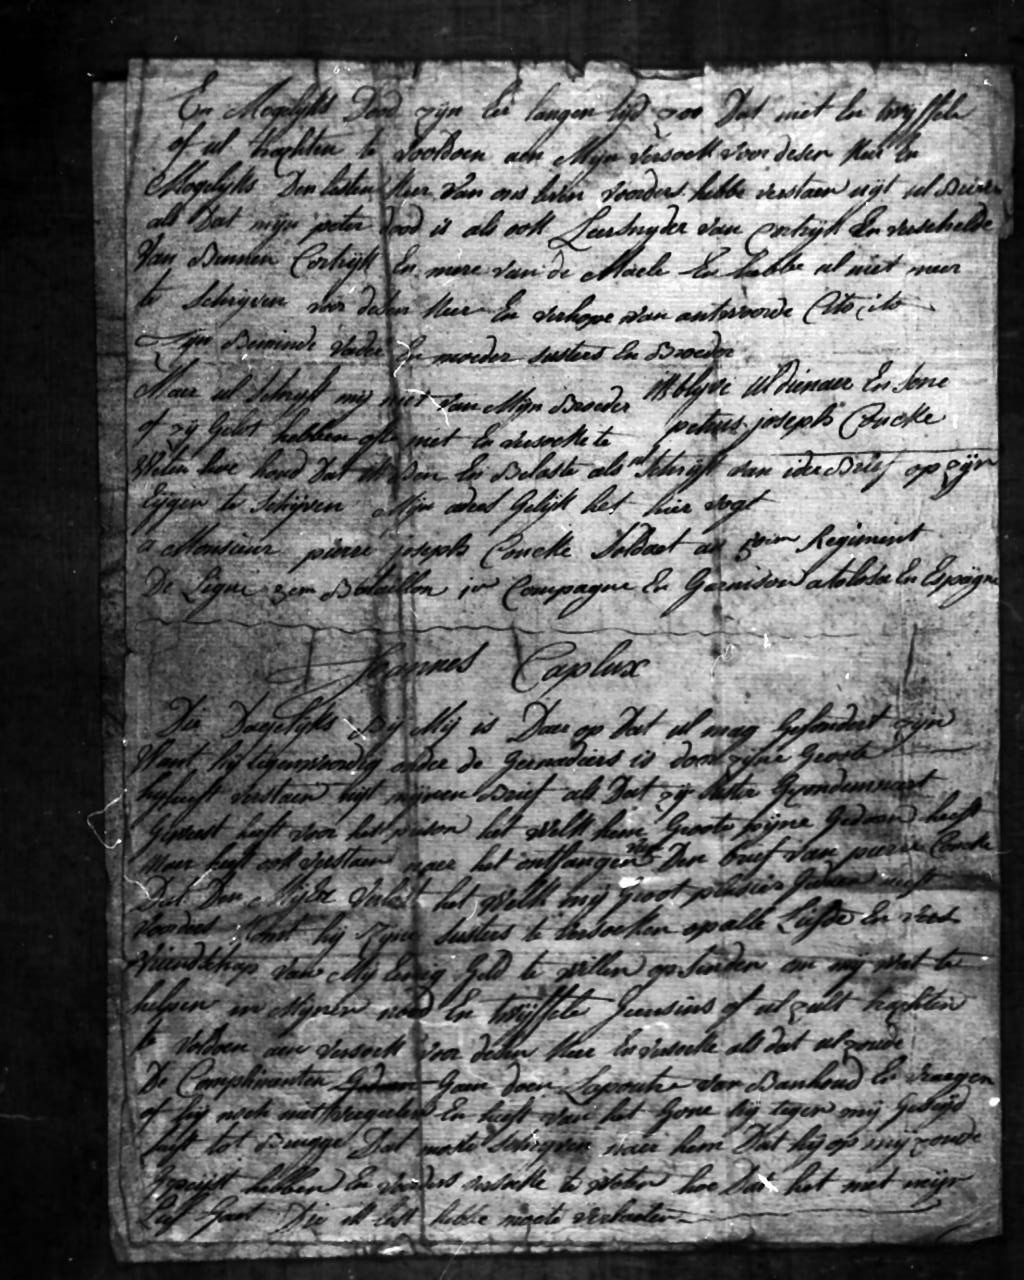 En Mogelyks Dood zyn Een langen tyd zoo Dat niet En twyffele
of ul trachten te voldoen aen Myn versoek voor desen Keer En
Mogelyks Den lesten Keer van ons leven voorders hebbe verstaen uyt ul Brieve
als Dat mijn peter dood is als ook Leersnyder van Cortryk En verscheide
Van Binnen Cortryk En mere van de Maele En hebbe ul niet meer
te Schryven voor desen Keer En verhope van antwoorde Cito cito
Zyn Beminde Vader En moeder susters En Broeder
Maer ul Schryft mij niet van Mijn Broeder Ik blyve Ul Dienaer En sone
of zy Gelot hebben ofte niet En versocke te petrus joseph Concke
Weten hoe Dat En Belaste als Schryft van ider Brief op zijn
Eygen te Schijven Mijn adres Gelijk het hier volgt
a Monsieur pierre joseph Concke Soldaet au Regiment
De Ligne 2em Bataillon Compagne En Garnison a tolosa En Espaigne
Joannes Caplux
Die Dagelyks By Mij is Daer op Dat ul mag Gesondert zijn
Want hij tegenwoordig onder de Grenadiers is door zijne Groote
hij heeft verstaen uijt mijnen Brief als Dat zij suster
Geweest heeft voor het prison het Welk hem Groote pijne Gedaen heeft
Maer heeft ook verstaen naer het ontfangen van Den brief van pierre Concke
Dat Den het Welk mij Groot plaisier Gedaen heeft
Voorders komt hij Zijne susters te versoeken op alle Liefde En vers
Vriendschap van Mij Eenig Geld te willen op senden om mij wat te
helpen in Mynen nood En twijffele Geensins of ul zult trachten
te voldoen aen versoek voor desen Keer En versocke als dat ul zoude
De Complimenten Gaen doen Lapoutre van Banhoud En vraegen
of hij noch niet vergeeten En heeft van het Gone hij tegen mij Geseijd
heeft tot Brugge Dat moste Schryven naer hem Dat hij op mij zoude
Gepeijst hebben En voorders versocke te weten hoe Dat het met mijn
Lief Gaet Die ik lest hebbe moete verlaeten